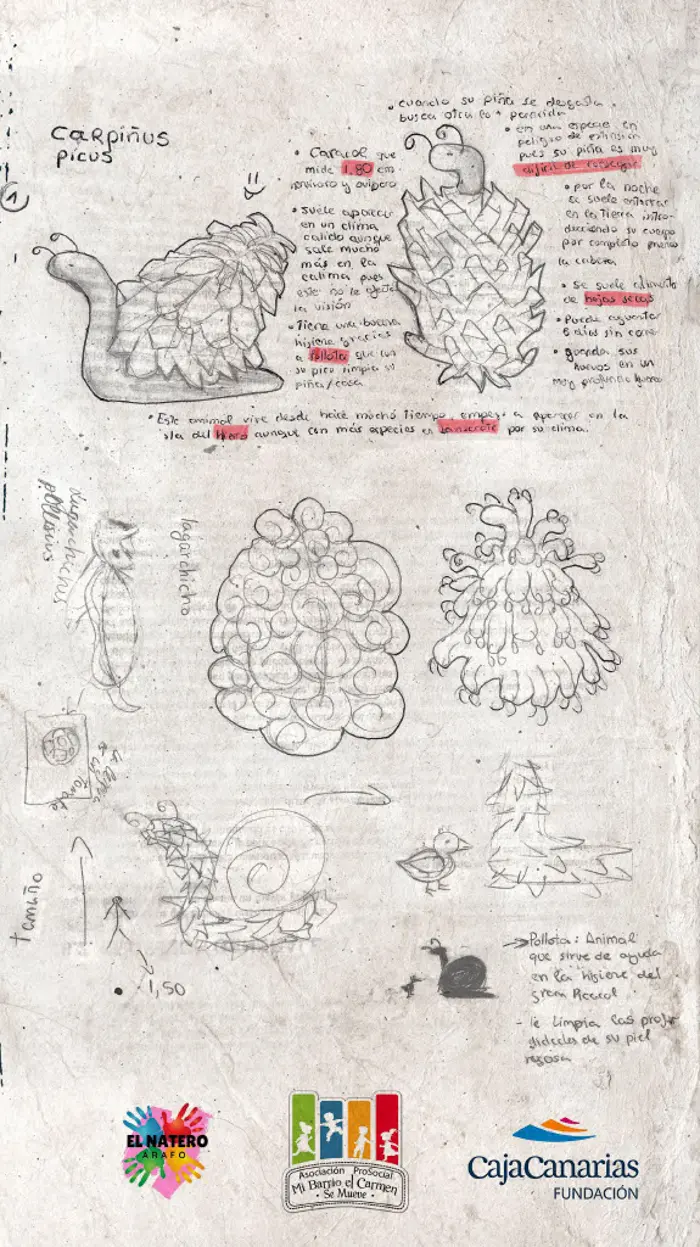 CARPIÑUS
PICUS
1
• Caracol que
mide 1,80 cm
y ovipero
• suele aparecer
en un clima
calido aunque
sale mucho
más en la
calima pues
este no le afecta
la visión
• Tiene una buena
higiene gracias
a Pollota que con
su pico limpia su
piña/casa
• cuando su piña se desgasta
busca otra
• en una especie en
peligro de
pues su piña es muy
dificil de conseguir
• por la noche
se suele enterrar
en la tierra intro-
duciendo su cuerpo
por completo menos
la cabeza
• Se suele alimenta
de hojas secas
• Puede aguantar
6 dias sin comer
• guarda sus
huevos en un
muy profundo hueco
• Este animal vive desde hace mucho tiempo, empezo a aparecer en la
isla del Hierro aunque con más especies en Lanzarote por su clima.
lagarchicho
Tamaño
1,50
Pollota: Animal
que sirve de ayuda
en la higiene del
gran
- le limpia las
de su piel
rugosa
EL NATERO
ARAFO
Asociación ProSocial
Mi Barrio el Carmen
• Se Mueve •
CajaCanarias
FUNDACIÓN